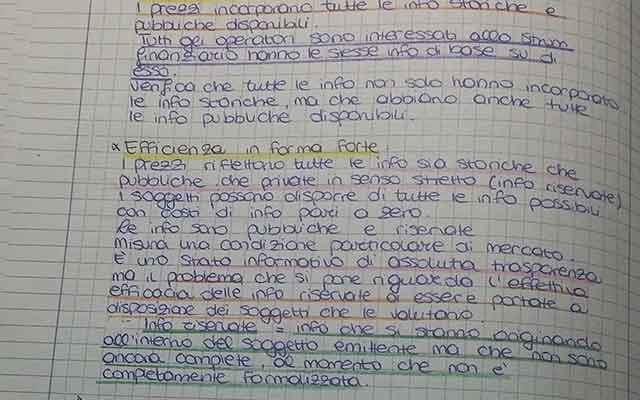 I prezzi incorporano tutte le info storiche e
pubbliche disponibili.
Tutti gli operatori sono interessati allo strum
finanziario hanno le stesse info di base su di
esso.
Verifica che tutte le info non solo hanno incorporato
le info storiche, ma che abbiano anche tutte
le info pubbliche disponibili.
Efficienza in forma forte
I prezzi riflettono tutte le info sia storiche che
pubbliche, che private in senso stretto (info riservate)
I soggetti possono disporre di tutte le info possibili
con costi di info pari a zero.
Le info sono pubbliche e riservate
misura una condizione particolare di mercato.
È uno stato informativo di assoluta trasparenza
ma il problema che si pone riguardo l'effettiva
efficacia delle info riservate di essere portate a
disposizione dei soggetti che le valutano.
Info riservate = info che si stanno originando
all'interno del soggetto emittente ma che non sono
ancora complete, al momento che non è
completamente formalizzata.